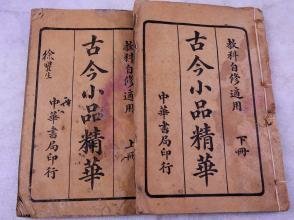 教科自修適用
古今小品精華
上冊
中華書局印行
徐璽生
教科自修適用
古今小品精華
下冊
中華書局印行